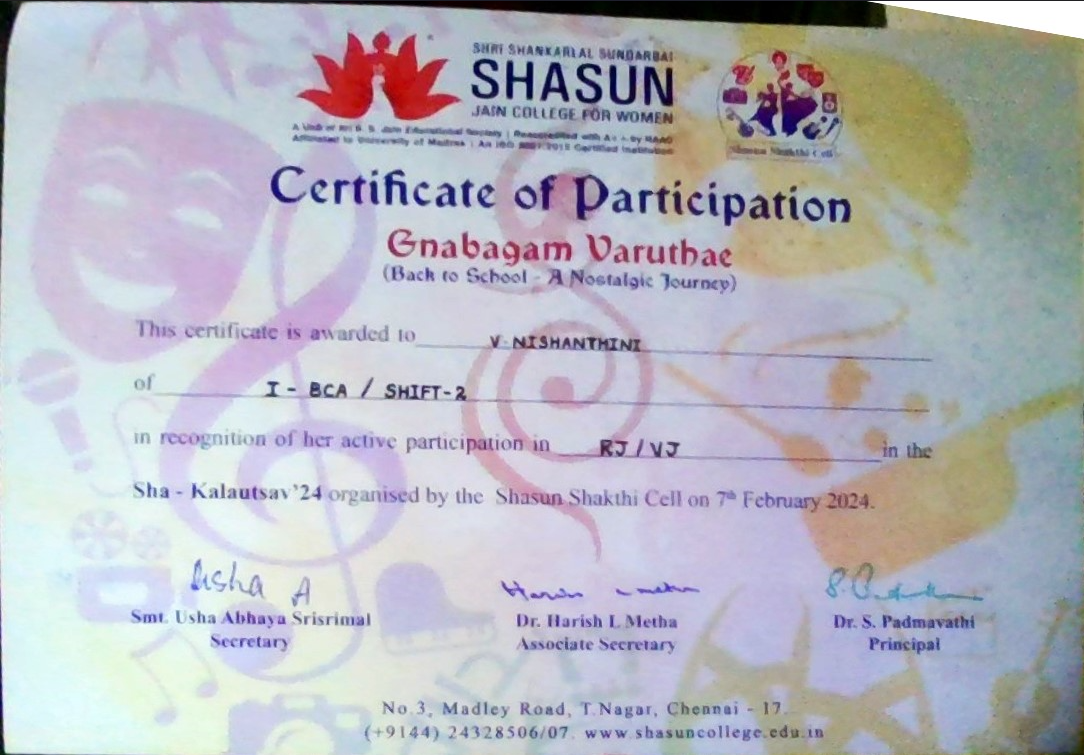 SHRI SHANKARLAL SUNDARBAI
SHASUN
JAIN COLLEGE FOR WOMEN
A Unit of Sri S. S. Jain Educational Society | Reaccredited with A+ by NAAC
Affiliated to University of Madras | An ISO 9001:2015 Certified Institution
Shasun Shakthi Cell
Certificate of Participation
Gnabagam Varuthae
(Back to School - A Nostalgic Journey)
This certificate is awarded to V. NISHANTHINI
of I - BCA / SHIFT-2
in recognition of her active participation in RJ / VJ in the
Sha - Kalautsav'24 organised by the Shasun Shakthi Cell on 7th February 2024.
Usha A
Smt. Usha Abhaya Srisrimal
Dr. Harish L Metha
Dr. S. Padmavathi
Secretary
Associate Secretary
Principal
No.3, Madley Road, T.Nagar, Chennai - 17.
(+9144) 24328506/07. www.shasuncollege.edu.in